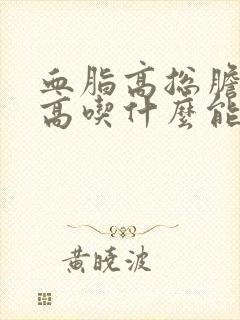 血脂高总膽
高喫什麼能
黃曉波